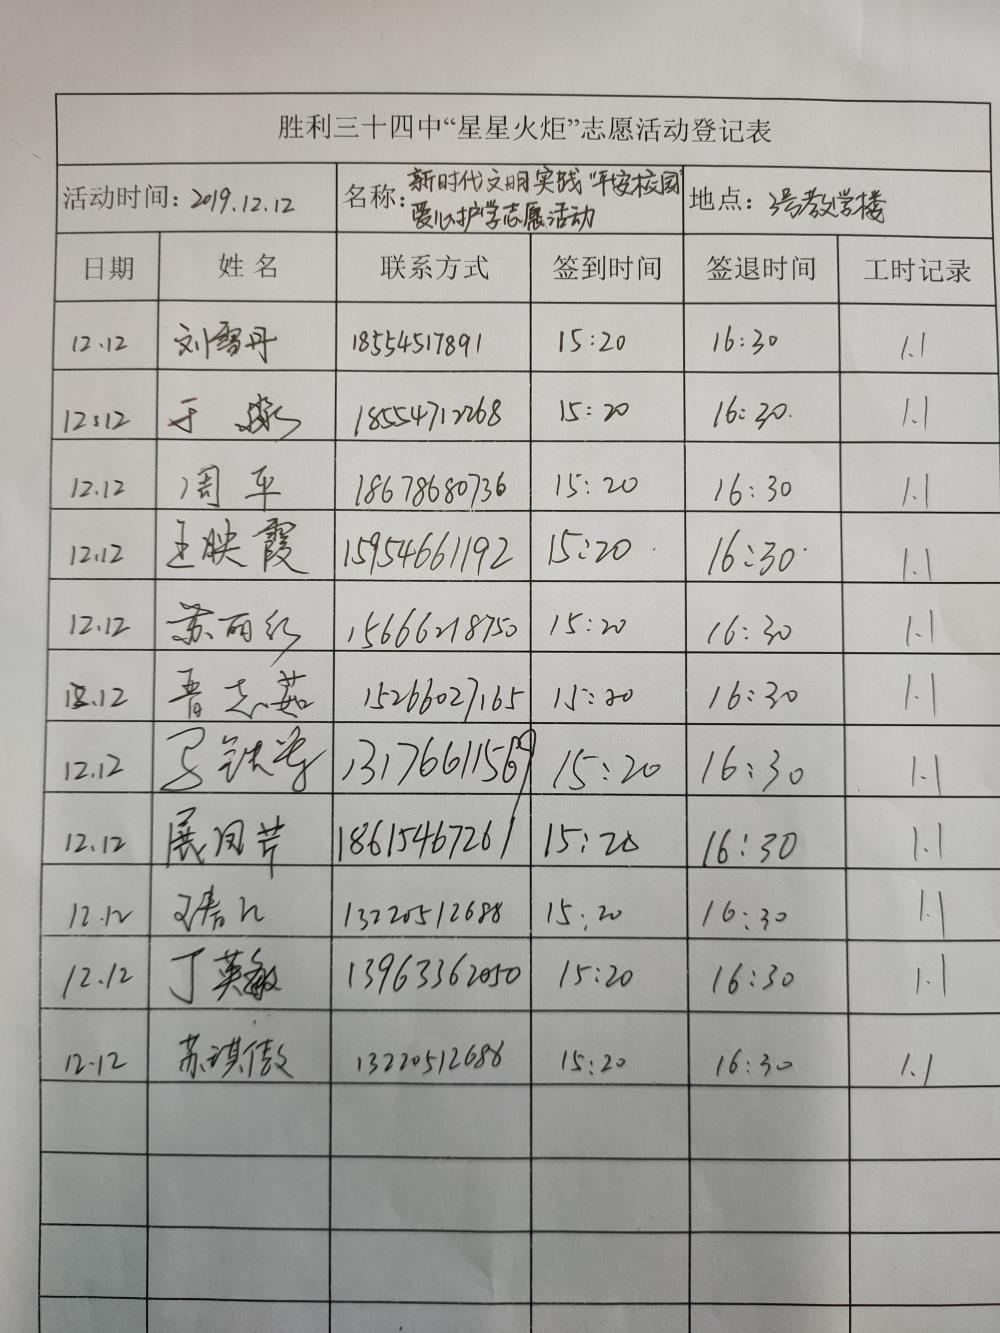 胜利三十四中“星星火炬”志愿活动登记表
活动时间：2019.12.12 名称：新时代文明实践“平安校园”爱心护学志愿活动 地点：3号教学楼
日期 姓名 联系方式 签到时间 签退时间 工时记录
12.12 刘雪丹 18554517891 15:20 16:30 1.1
12:12 于 18554712268 15:20 16:30. 1.1
12.12 周平 18678680736 15:20 16:30 1.1
12.12 王映霞 15954661192 15:20 16:30 1.1
12.12 苏丽红 15666218750 15:20 16:30 1.1
12.12 晋志茹 15266027165 15:20 16:30 1.1
12.12 马铁 13176611569 15:20 16:30 1.1
12.12 展凤芹 18615467261 15:20 16:30 1.1
12.12 13220512688 15:20 16:30 1.1
12.12 丁英敏 13963362050 15:20 16:30 1.1
12.12 苏琪傲 13220512688 15:20 16:30 1.1